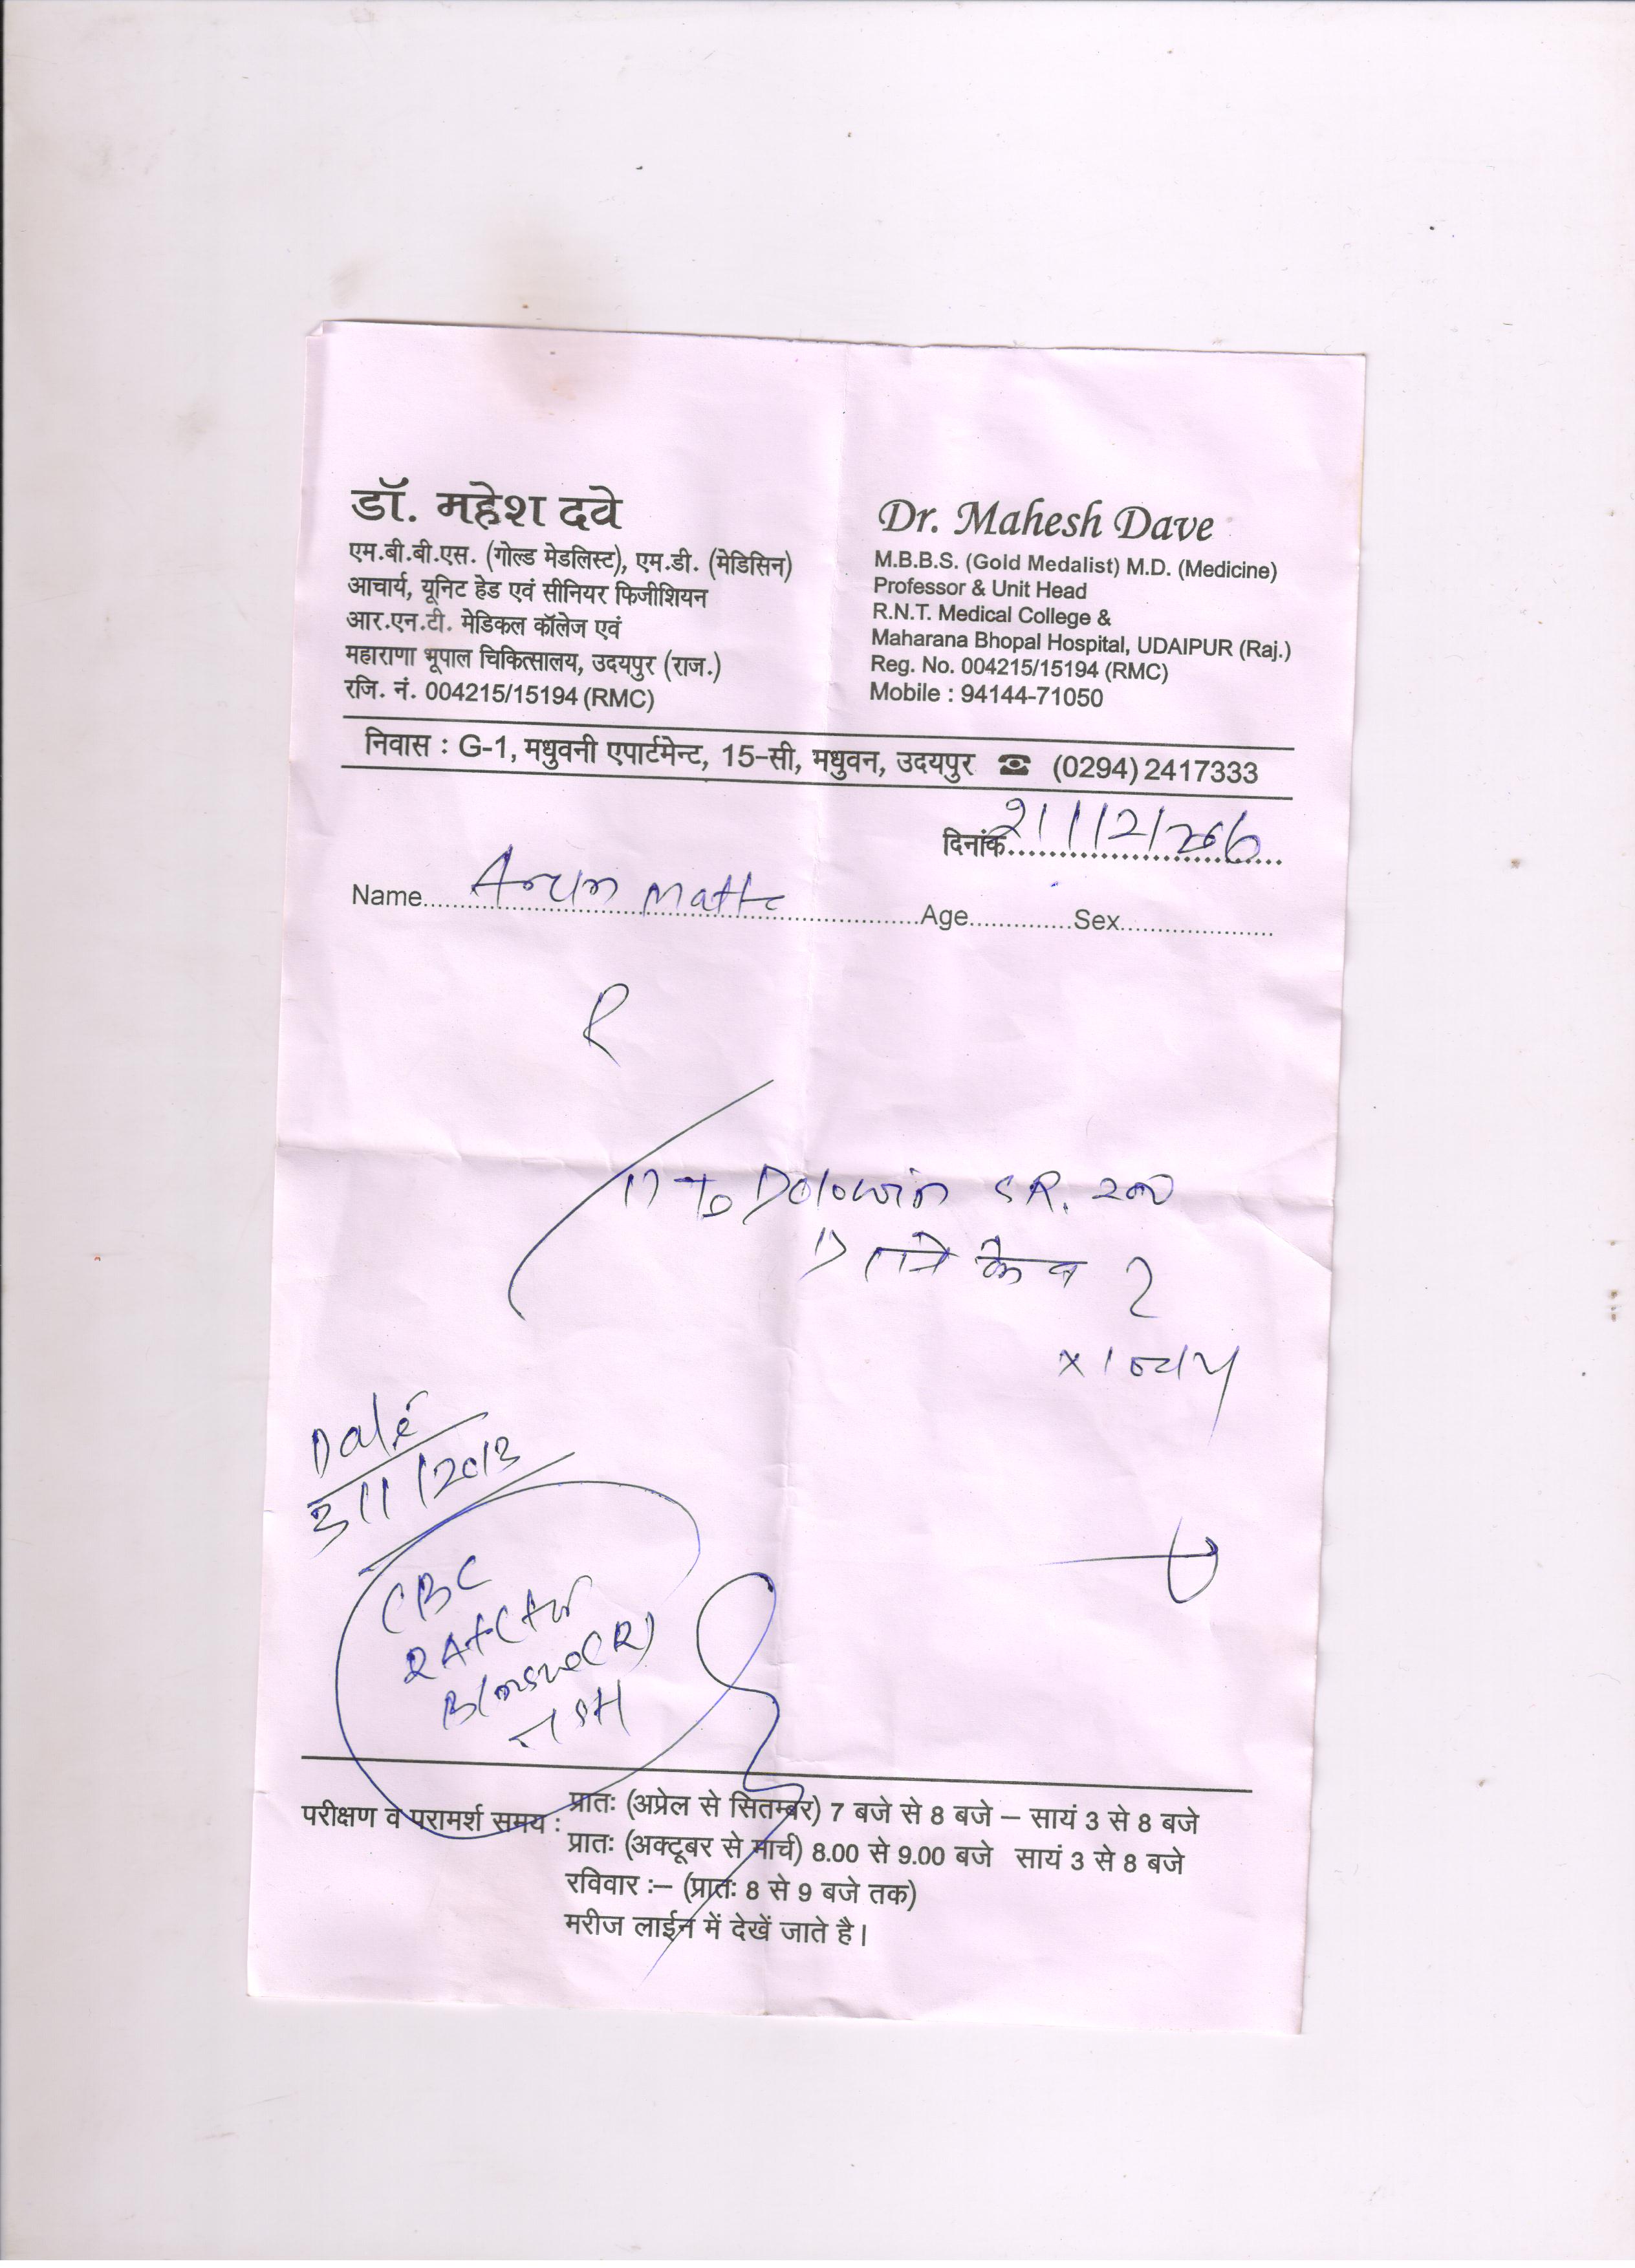 डॉ. महेश दवे
एम.बी.बी.एस. (गोल्ड मेडलिस्ट), एम.डी. (मेडिसिन)
आचार्य, यूनिट हेड एवं सीनियर फिजीशियन
आर.एन.टी. मेडिकल कॉलेज एवं
महाराणा भूपाल चिकित्सालय, उदयपुर (राज.)
रजि. नं. 004215/15194 (RMC)
Dr. Mahesh Dave
M.B.B.S. (Gold Medalist) M.D. (Medicine)
Professor & Unit Head
R.N.T. Medical College &
Maharana Bhopal Hospital, UDAIPUR (Raj.)
Reg. No. 004215/15194 (RMC)
Mobile : 94144-71050
निवास : G-1, मधुवनी एपार्टमेन्ट, 15-सी, मधुवन, उदयपुर ☎ (0294) 2417333
दिनांक
Name Age Sex
R
1) Dolowin SR. 200
Date
3/1/2013
CBC
TSH
परीक्षण व परामर्श समय : प्रातः (अप्रेल से सितम्बर) 7 बजे से 8 बजे – सायं 3 से 8 बजे
प्रातः (अक्टूबर से मार्च) 8.00 से 9.00 बजे सायं 3 से 8 बजे
रविवार :– (प्रातः 8 से 9 बजे तक)
मरीज लाईन में देखें जाते है।